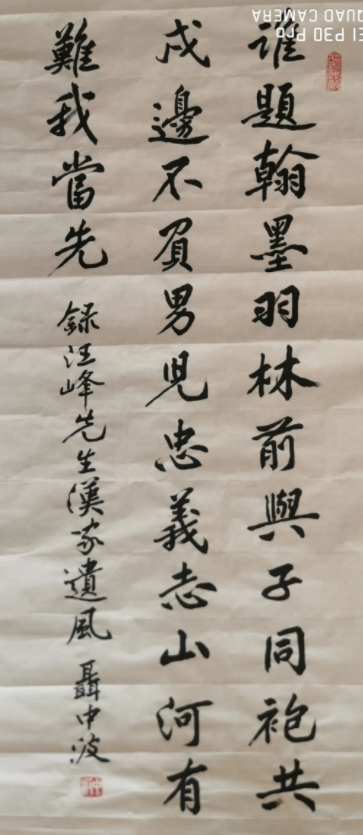 誰題翰墨羽林前與子同袍共
戍邊不負男児忠義志山河有
難我當先
錄汪峰先生漢家遺風
聶中波
EI P30 Pro
QUAD CAMERA